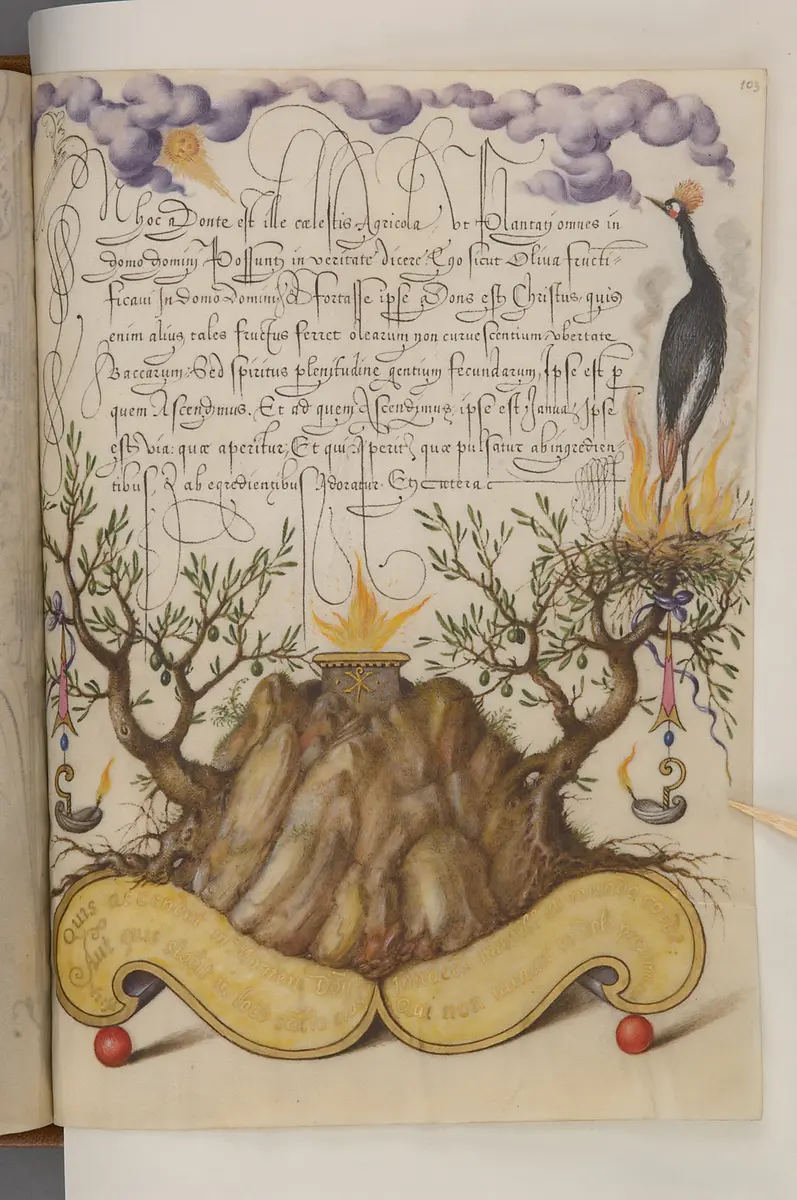 103
In hoc a Monte est ille cælestis Agricola, Vt Plantati omnes in
domo domini Possunt in veritate dicere: Ego sicut Oliua fructi=
ficaui In domo Domini, & fortasse ipse Mons est Christus, quis
enim alius tales fructus ferret olearum non curuescentium vbertate
Baccarum: Sed spiritus plenitudine gentium fecundarum, Ipse est p
quem Ascendimus. Et ad quem Ascendimus, ipse est Ianua, Ipse
est via: quæ aperitur, Et qui Aperit, quæ pulsatur ab ingredien=
tibus, & ab egredientibus Adoratur. Et cætera
Quis ascendet in montem Dni
Aut quis stabit in loco sancto eius
Innocens manibus et mundo corde
Qui non